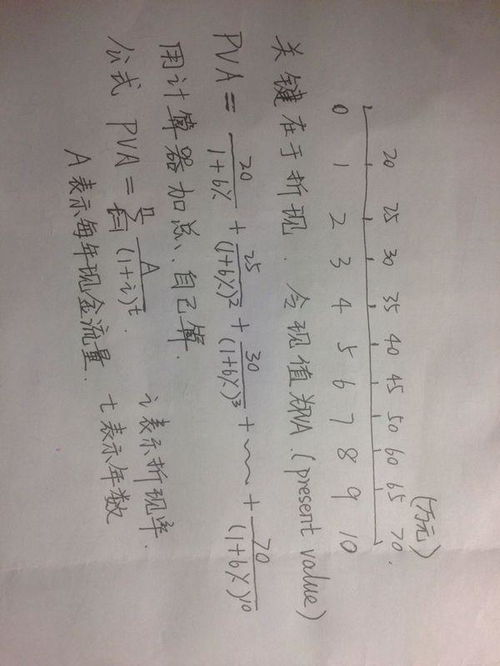 20 25 30 35 40 45 50 60 65 70 (万元)
0 1 2 3 4 5 6 7 8 9 10
关键在于折现. 令现值为PVA.(present value)
PVA = 20/(1+6%) + 25/(1+6%)² + 30/(1+6%)³ + ~~~ + 70/(1+6%)¹⁰
用计算器加总、自己算.
公式 PVA = Σ A/(1+i)^t. i表示折现率.
A表示每年现金流量. t表示年数